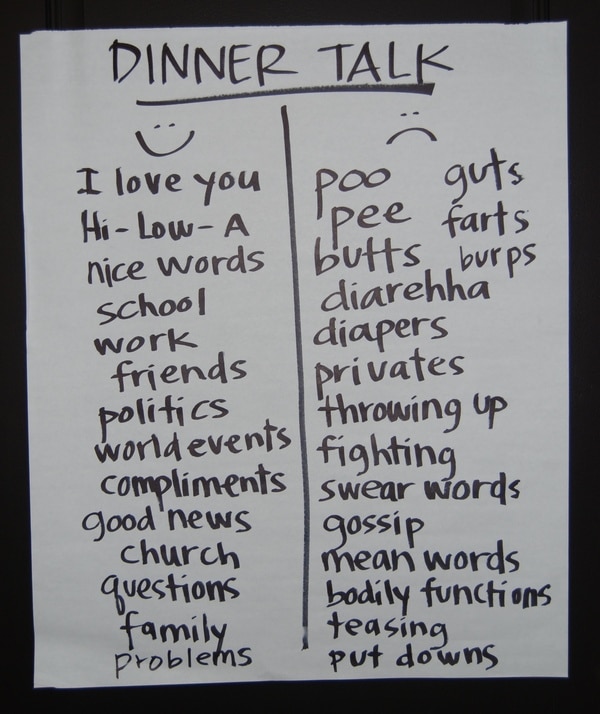 DINNER TALK
I love you
Hi-Low-A
nice words
school
work
friends
politics
world events
compliments
good news
church
questions
family
problems
poo guts
pee farts
butts burps
diarehha
diapers
privates
throwing up
fighting
swear words
gossip
mean words
bodily functions
teasing
put downs